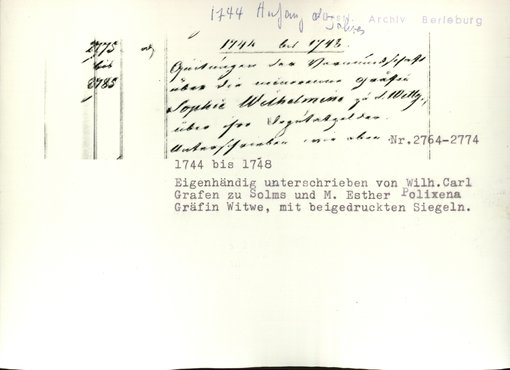 1744 Anfang des Jahres
Archiv Berleburg
2775
bis
2783
1744 bis 1748.
Quittungen der Vormundschaft
über die minorenne Gräfin
Sophie Wilhelmine zu S. Wittg.,
über ihre Deputatgelder.
Unterschrieben wie oben Nr. 2764-2774
1744 bis 1748
Eigenhändig unterschrieben von Wilh.Carl
Grafen zu Solms und M. Esther Polixena
Gräfin Witwe, mit beigedruckten Siegeln.